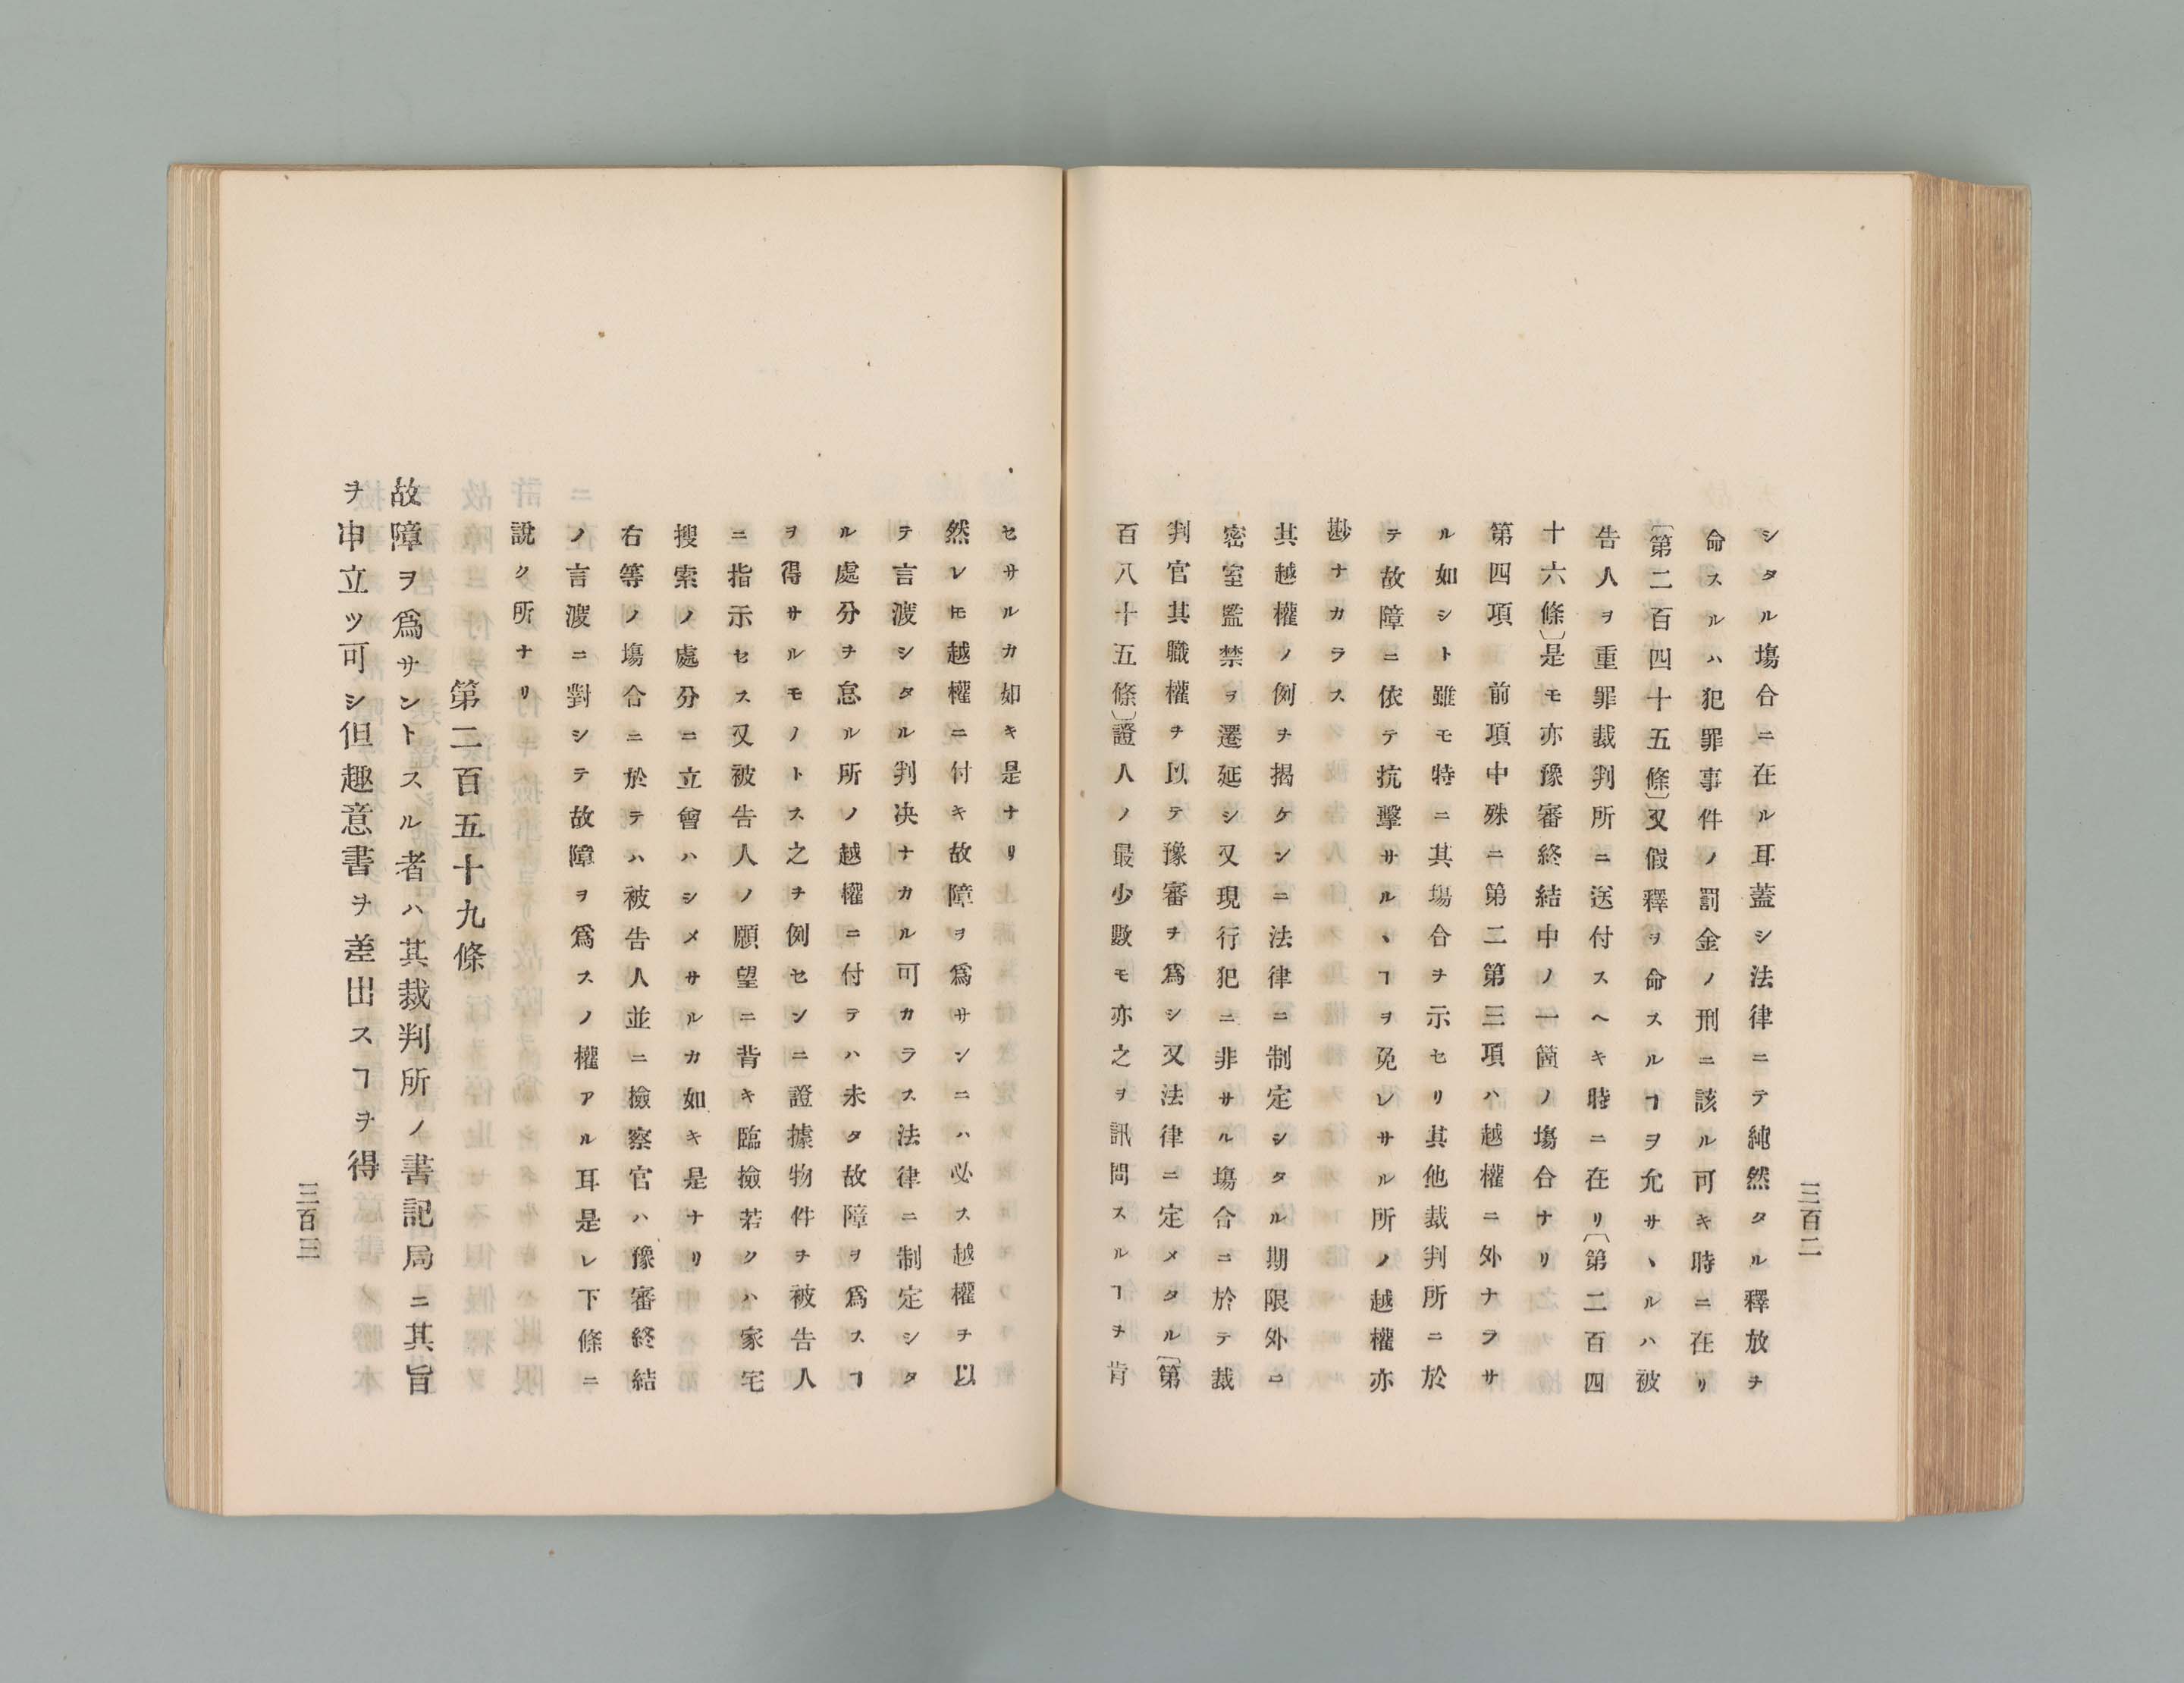 三百二
シタル塲合ニ在ル耳蓋シ法律ニテ純然タル釋放ヲ
命スルハ犯罪事件ノ罰金ノ刑ニ該ル可キ時ニ在リ
〔第二百四十五條〕又假釋ヲ命スルヿヲ允サヽルハ被
告人ヲ重罪裁判所ニ送付スヘキ時ニ在リ〔第二百四
十六條〕是モ亦豫審終結中ノ一箇ノ塲合ナリ
第四項　前項中殊ニ第二第三項ハ越權ニ外ナラサ
ル如シト雖モ特ニ其塲合ヲ示セリ其他裁判所ニ於
テ故障ニ依テ抗擊サルヽヿヲ免レサル所ノ越權亦
尠ナカラス
其越權ノ例ヲ揭ケンニ法律ニ制定シタル期限外ニ
密室監禁ヲ遷延シ又現行犯ニ非サル塲合ニ於テ裁
判官其職權ヲ以テ豫審ヲ爲シ又法律ニ定メタル〔第
百八十五條〕證人ノ最少數モ亦之ヲ訊問スルヿヲ肯
セサルカ如キ是ナリ
然レ𪜈越權ニ付キ故障ヲ爲サンニハ必ス越權ヲ以
テ言渡シタル判决ナカル可カラス法律ニ制定シタ
ル處分ヲ怠ル所ノ越權ニ付テハ未タ故障ヲ爲スヿ
ヲ得サルモノトス之ヲ例センニ證據物件ヲ被告人
ニ指示セス又被告人ノ願望ニ背キ臨撿若クハ家宅
搜索ノ處分ニ立會ハシメサルカ如キ是ナリ
右等ノ塲合ニ於テハ被告人並ニ撿察官ハ豫審終結
ノ言渡ニ對シテ故障ヲ爲スノ權アル耳是レ下條ニ
說ク所ナリ
第二百五十九條
故障ヲ爲サントスル者ハ其裁判所ノ書記局ニ其旨
ヲ申立ツ可シ但趣意書ヲ差出スヿヲ得
三百三